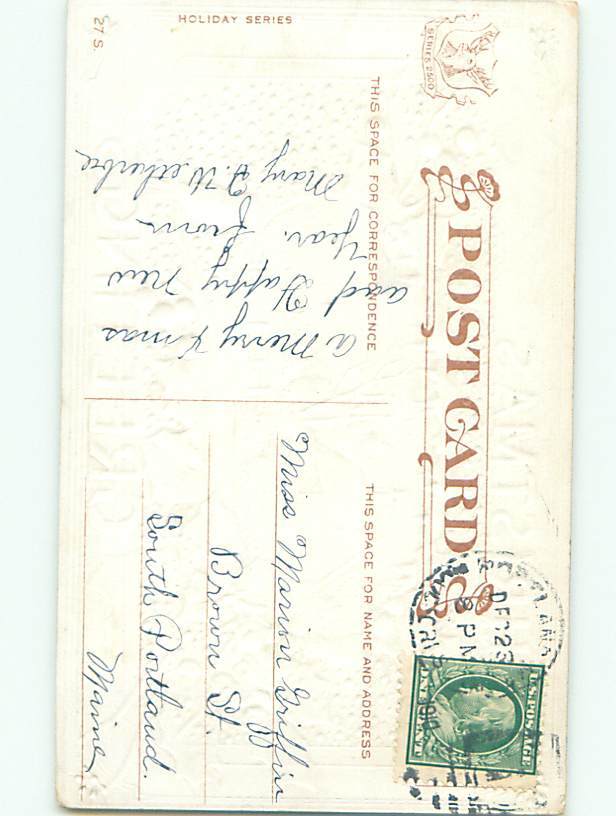 HOLIDAY SERIES
27 S.
SERIES 2500
POST CARD
THIS SPACE FOR CORRESPONDENCE
THIS SPACE FOR NAME AND ADDRESS
a Merry X mas
and Happy New
Year. from
Mary F. Wetherbe
Miss Marion Griffin
Brown St.
South Portland.
Maine
DEC 23
8 PM
U.S. POSTAGE